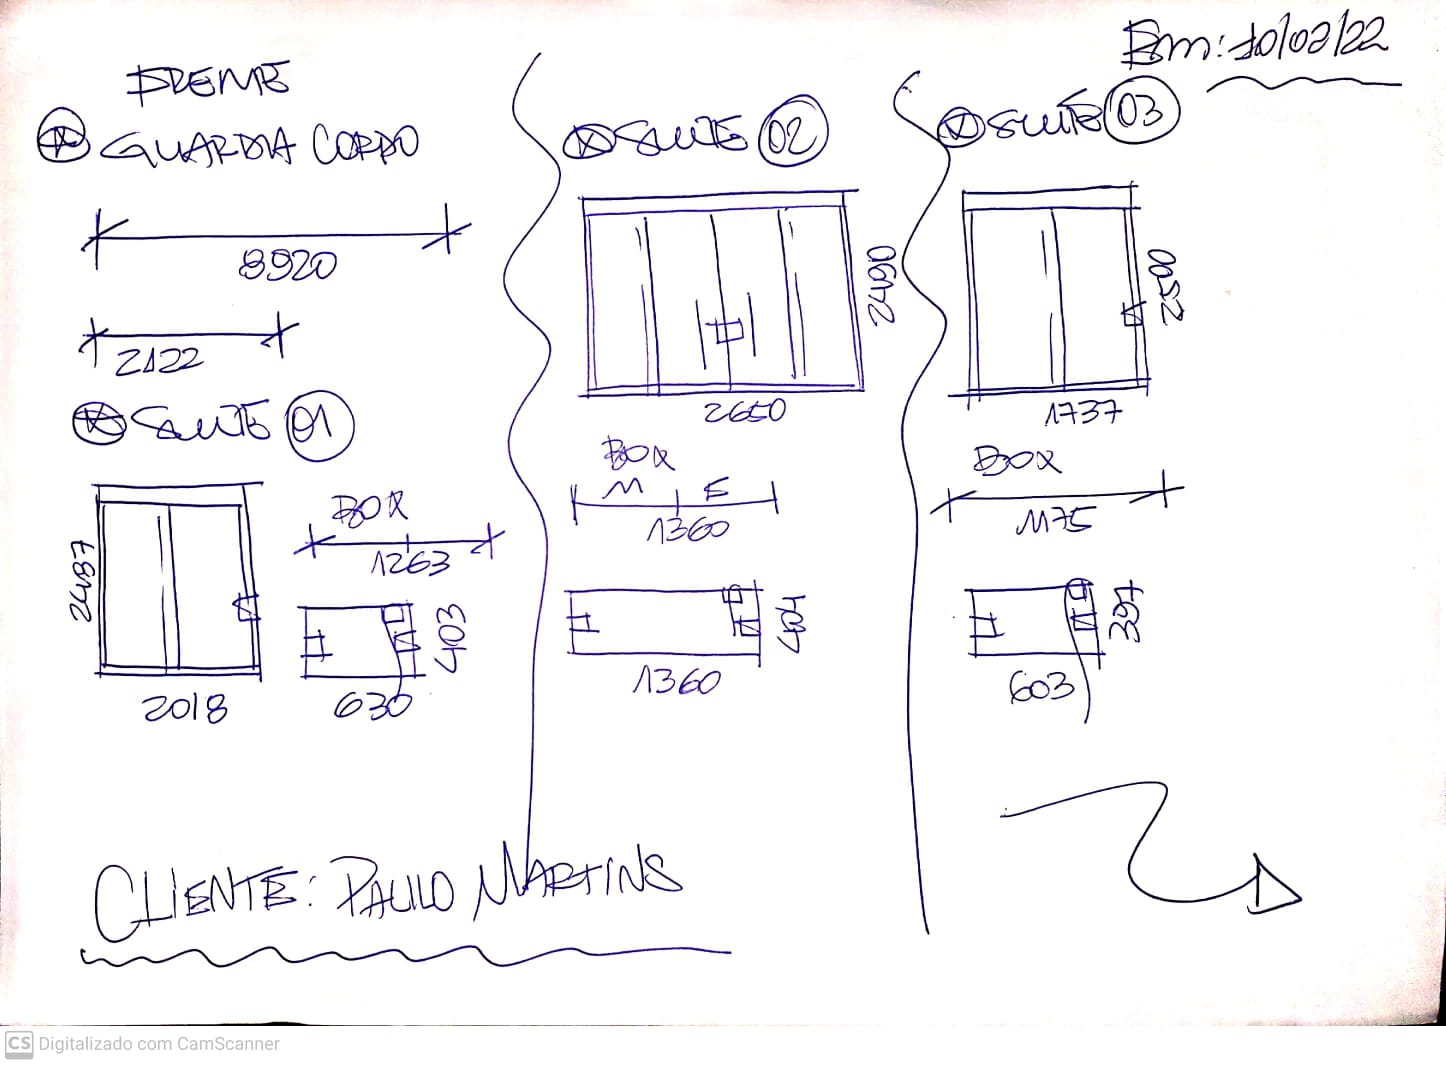 Em: 10/02/22
GUARDIA CORPO
8920
2122
SUITE 01
2487
2018
BOX
1263
403
630
SUITE 02
2490
2650
BOX
M E
1360
404
1360
SUITE 03
2500
1737
BOX
1175
397
603
CLIENTE: PAULO MARTINS
CS Digitalizado com CamScanner